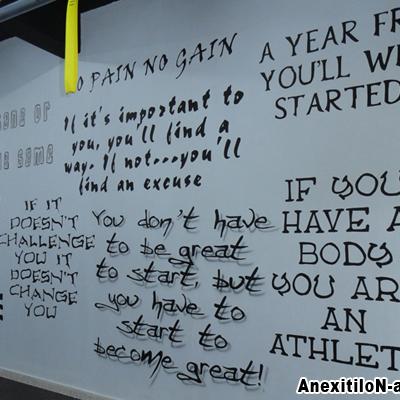 O PAIN NO GAIN
If it's important to
you, you'll find a
way. If not...you'll
find an excuse
A YEAR FR
YOU'LL WI
STARTED
or
some
IF IT
DOESN'T
CHALLENGE
YOU IT
DOESN'T
CHANGE
YOU
You don't have
to be great
to start, but
you have to
start to
become great!
IF YOU
HAVE A
BODY
YOU AR
AN
ATHLET
AnexitiloN-a